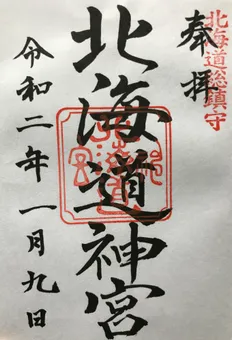 北海道総鎮守
奉拝
北海道神宮
令和二年一月九日